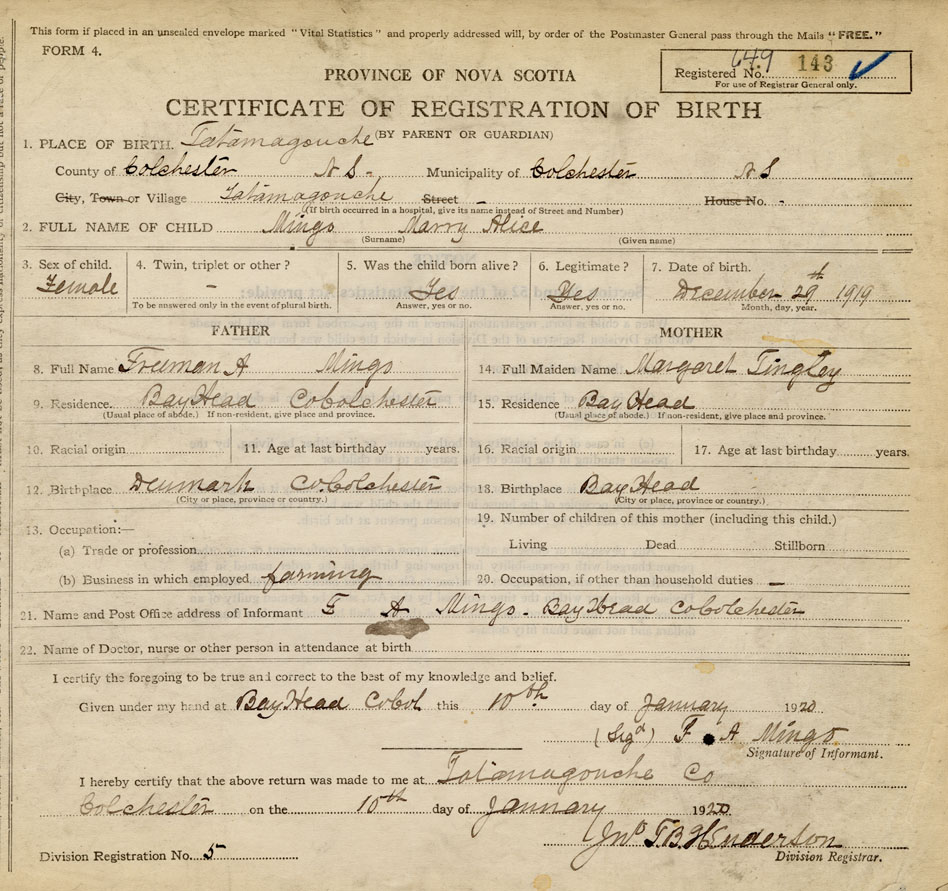 This form if placed in an unsealed envelope marked "Vital Statistics" and properly addressed will, by order of the Postmaster General pass through the Mails "FREE."
FORM 4.
Registered No. 649 143
For use of Registrar General only.
PROVINCE OF NOVA SCOTIA
CERTIFICATE OF REGISTRATION OF BIRTH
(BY PARENT OR GUARDIAN)
1. PLACE OF BIRTH. Tatamagouche
County of Colchester N S - Municipality of Colchester N S
City, Town or Village Tatamagouche Street - House No. -
(If birth occurred in a hospital, give its name instead of Street and Number)
2. FULL NAME OF CHILD Mingo Marry Alice
(Surname) (Given name)
3. Sex of child. 4. Twin, triplet or other? 5. Was the child born alive? 6. Legitimate? 7. Date of birth.
Female - Yes Yes December 29th 1919
To be answered only in the event of plural birth. Answer, yes or no. Answer, yes or no. Month, day, year.
FATHER MOTHER
8. Full Name Freeman A Mingo 14. Full Maiden Name Margaret Tingley
9. Residence. Bay Head Co Colchester 15. Residence Bay Head
(Usual place of abode.) If non-resident, give place and province. (Usual place of abode.) If non-resident, give place and province.
10. Racial origin 11. Age at last birthday years. 16. Racial origin 17. Age at last birthday years.
12. Birthplace Denmark Co Colchester 18. Birthplace Bay Head
(City or place, province or country.) (City or place, province or country.)
13. Occupation:— 19. Number of children of this mother (including this child.)
(a) Trade or profession Living Dead Stillborn
(b) Business in which employed farming 20. Occupation, if other than household duties —
21. Name and Post Office address of Informant F A Mingo - Bay Head Co Colchester
22. Name of Doctor, nurse or other person in attendance at birth
I certify the foregoing to be true and correct to the best of my knowledge and belief.
Given under my hand at Bay Head Co Col this 10th day of January 1920
(Sigd) F. A Mingo
Signature of Informant.
I hereby certify that the above return was made to me at Tatamagouche Co
Colchester on the 10th day of January 1920
Jno T B Henderson
Division Registration No. 5 Division Registrar.